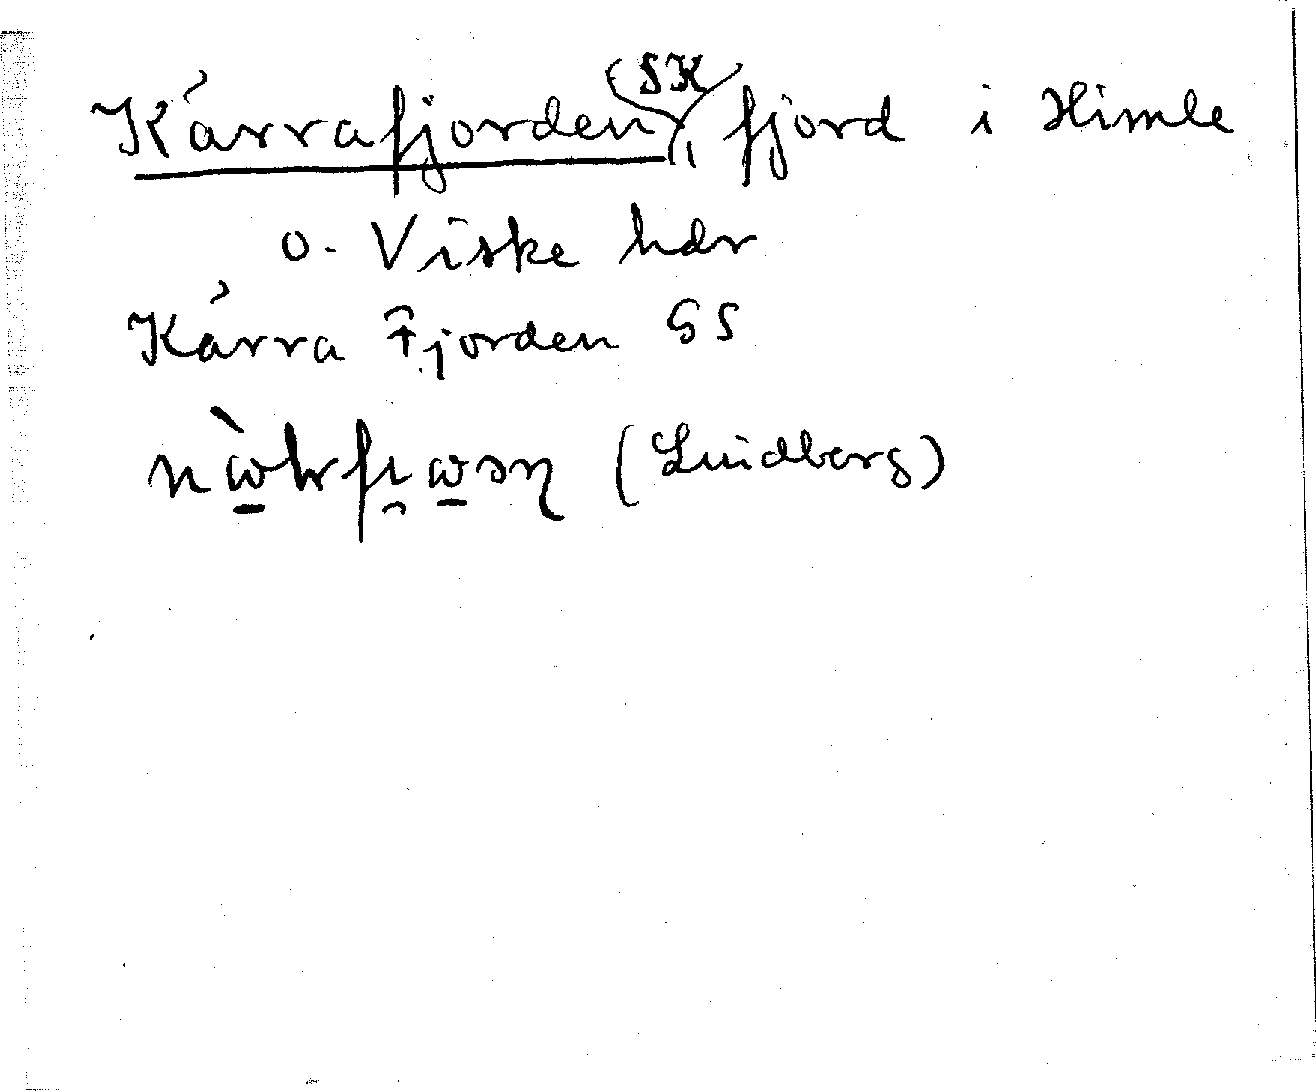 Kårrafjorden (SK), fjord i Himle
o. Viske hdr
Kårra Fjorden GS
(Lindberg)